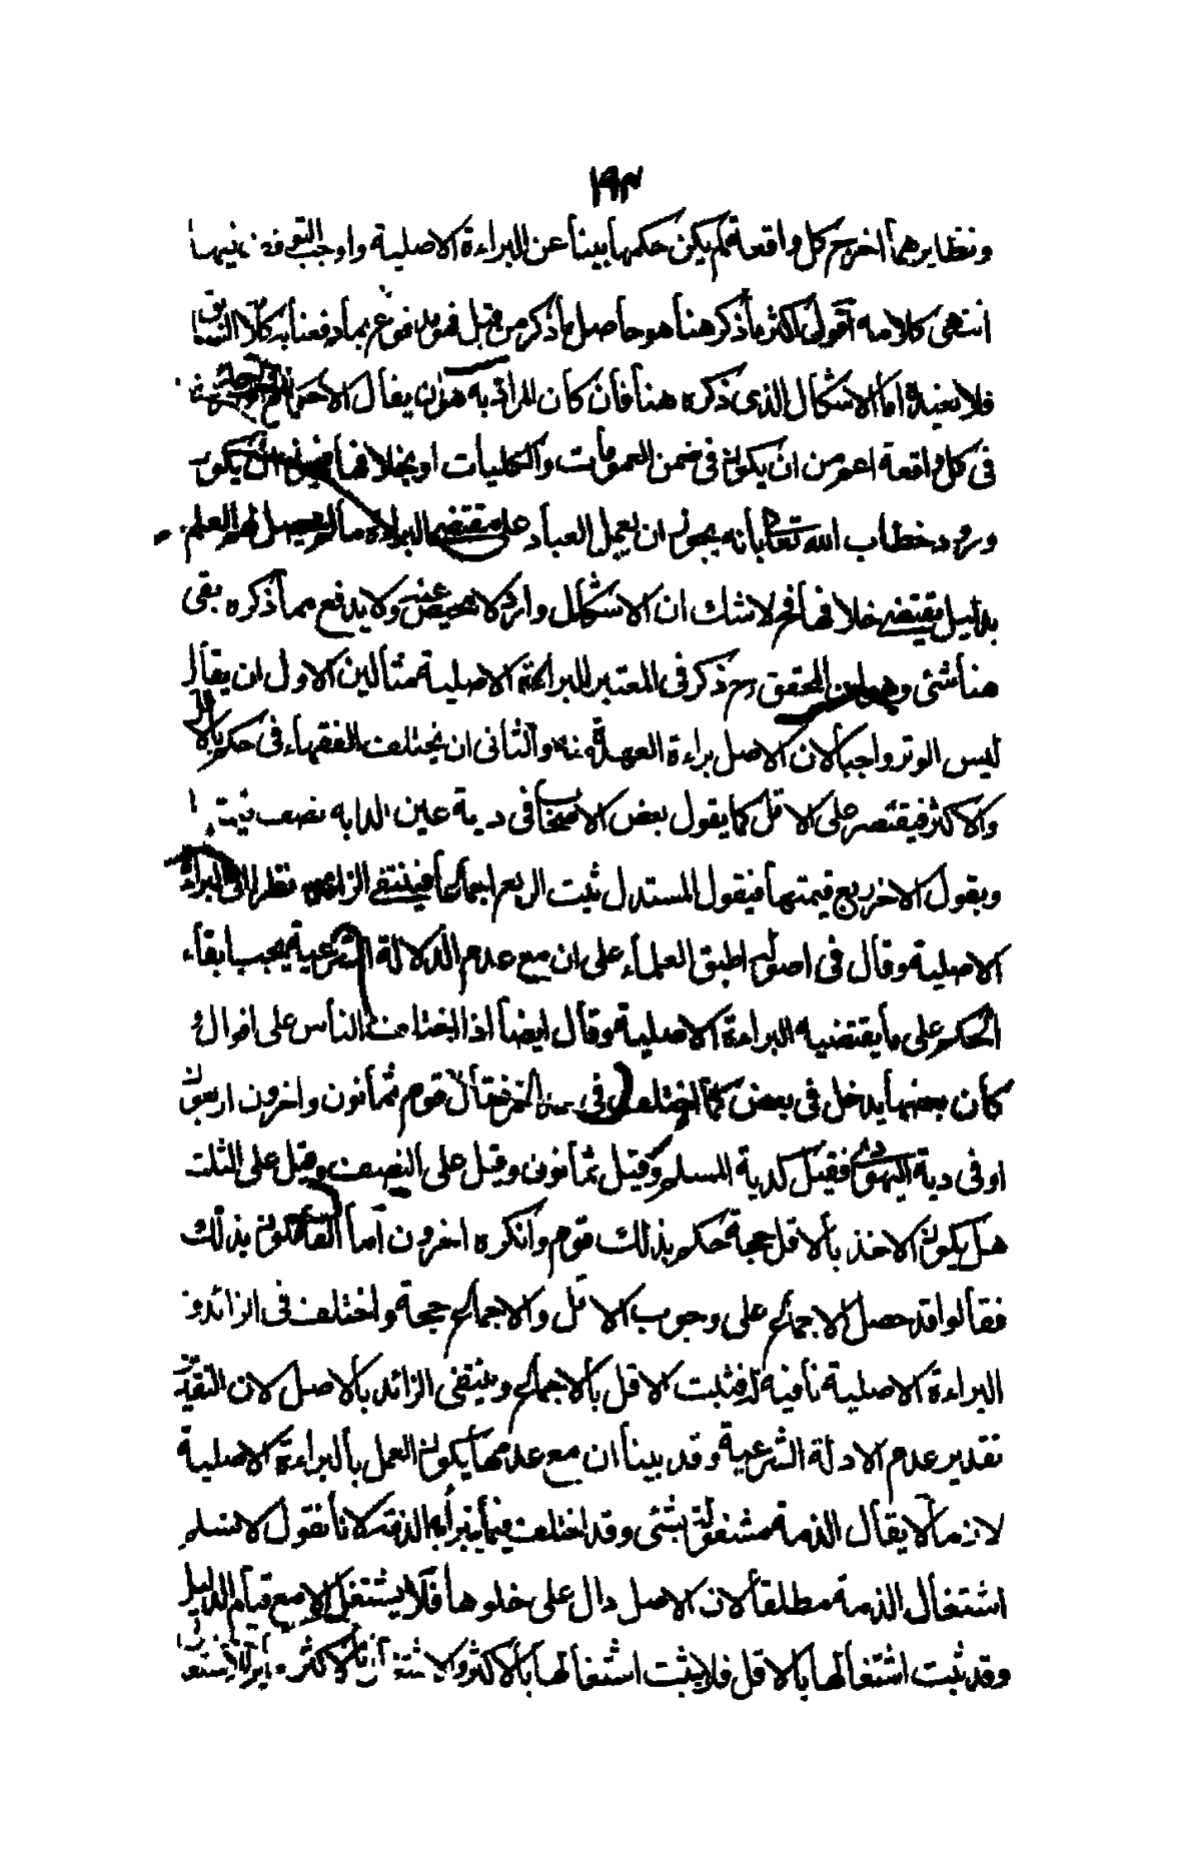 ١٩٣
ونظايرهما اخرج كل واقعة لم يكن حكمها بينا عن البراءة الاصلية واوجب التوقف فيها
انتهى كلامه اقول اكثر ما ذكر هنا هو حاصل ما ذكر من قبل فهو مدفوع بما دفعنا به كلامه
فلا نعيده اما الاشكال الذى ذكره هنا فان كان المراد به هو ان يقال
فى كل واقعة اعم من ان يكون فى ضمن العمومات والكليات او بخلافها ان يكون
ورود خطاب الله تعالى بانه يجوز ان يعمل العباد على مقتضى البراءة ما لم يحصل لهم العلم
بدليل يقتضى خلافها فح لا شك ان الاشكال وارد لا محيص عنه ولا يدفع مما ذكره بقى
هنا شئى وهو ان المحقق رح ذكر فى المعتبر للبراءة الاصلية مثالين الاول ان يقال
ليس الوتر واجبا لان الاصل براءة العهدة منه والثانى ان يختلف الفقهاء فى حكم بالاقل
والاكثر فيقتصر على الاقل كما يقول بعض الاصحاب فى دية عين الدابه نصف قيمتها
ويقول الاخر ربع قيمتها فيقول المستدل ثبت الربع اجماعا فينتفى الزائد نظرا الى البراءة
الاصلية وقال فى اصوله اطبق العلماء على ان مع عدم الدلالة الشرعية يجب ابقاء
الحكم على ما يقتضيه البراءة الاصلية وقال ايضا اذا اختلف الناس على اقوال
كان بعضها يدخل فى بعض كما اختلف فى حد الخمر فقال قوم ثمانون واخرون اربعون
او فى دية اليهودى فقيل كدية المسلم وقيل ثمانون وقيل على النصف وقيل على الثلث
هل يكون الاخذ بالاقل حجة حكم بذلك قوم وانكره اخرون اما القائلون بذلك
فقالوا قد حصل الاجماع على وجوب الاقل والاجماع حجة واختلف فى الزائد و
البراءة الاصلية نافية له فثبت الاقل بالاجماع وينتفى الزائد بالاصل لان التقدير
تقدير عدم الادلة الشرعية وقد بينا ان مع عدمها يكون العمل بالبراءة الاصلية
لازما لا يقال الذمة مشغولة بشئى وقد اختلف فيما يتبرأ به الذمة لانا نقول لا نسلم
اشتغال الذمة مطلقا لان الاصل دال على خلوها فلا يشتغل الا مع قيام الدليل
وقد ثبت اشتغالها بالاقل فلا يثبت اشتغالها بالاكثر